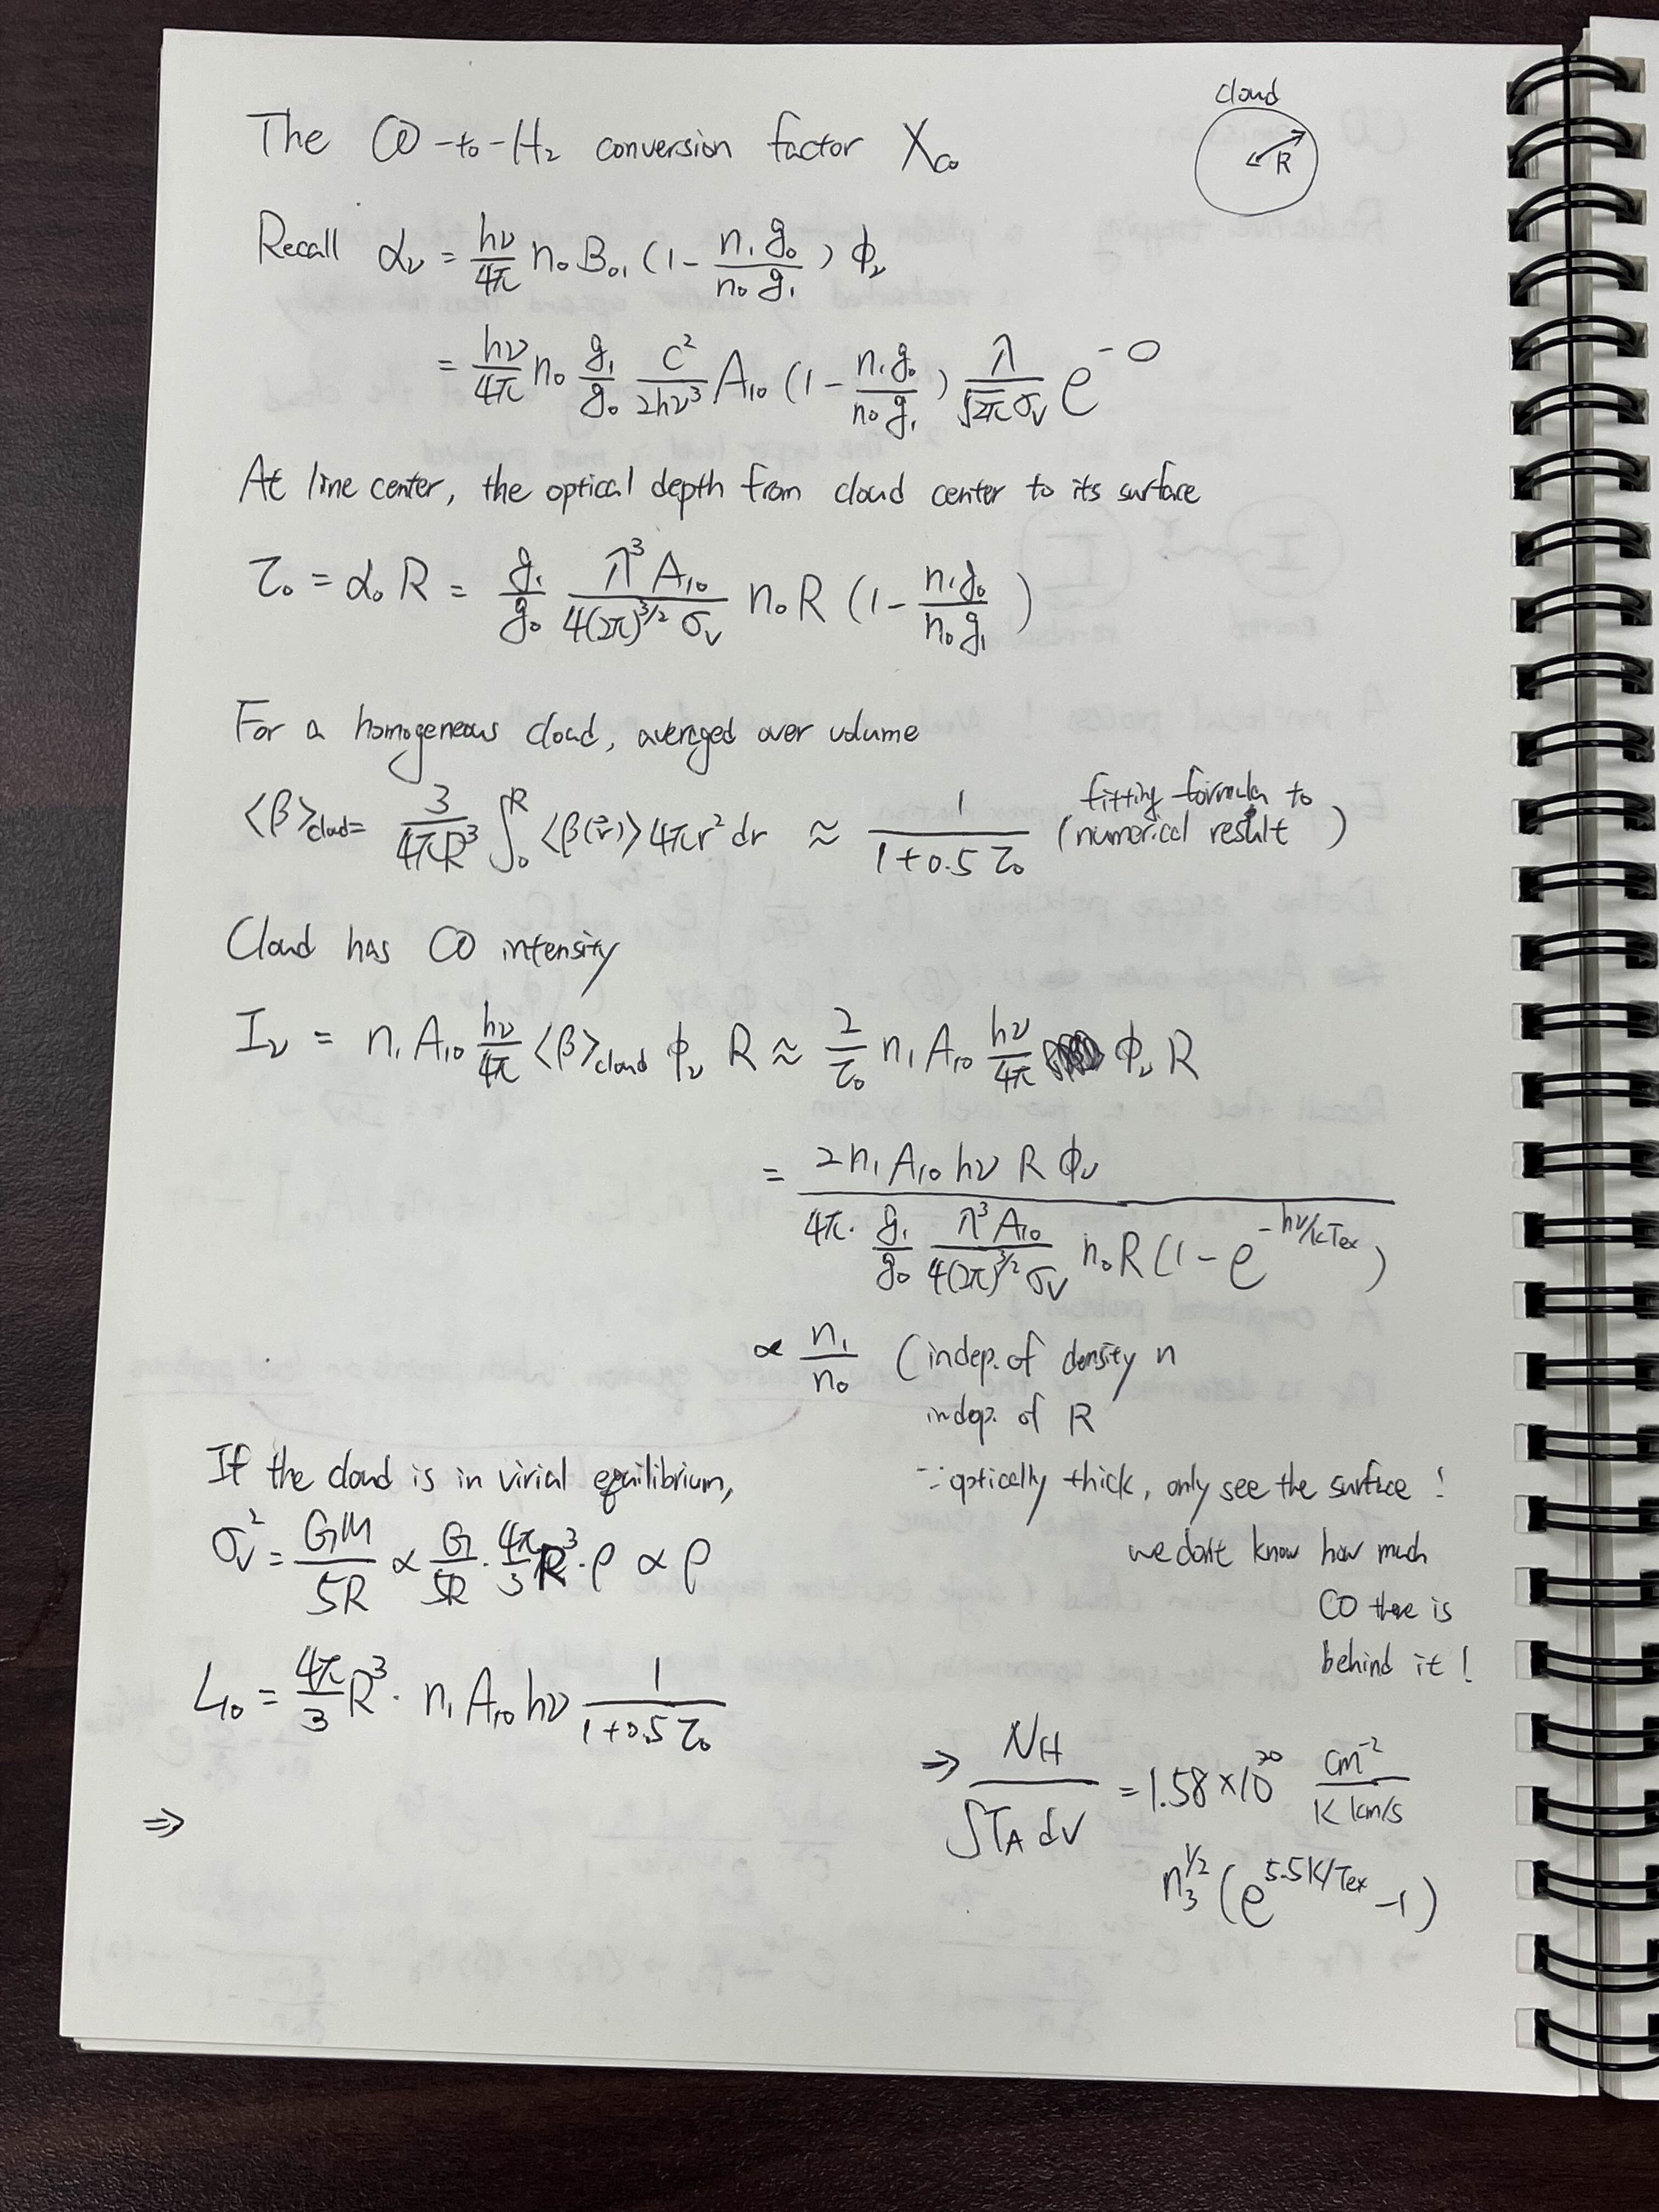 cloud
R
The CO-to-H₂ conversion factor X_CO
Recall α_ν = hν/4π n₀ B₀₁ (1 - n₁g₀/n₀g₁) ϕ_ν
= hν/4π n₀ g₁/g₀ c²/2hν³ A₁₀ (1 - n₁g₀/n₀g₁) λ/√2π σ_v e^-0
At line center, the optical depth from cloud center to its surface
τ₀ = α₀ R = g₁/g₀ λ³A₁₀/4(2π)^3/2 σ_v n₀ R (1 - n₁g₀/n₀g₁)
For a homogeneous cloud, averaged over volume
⟨β⟩_cloud = 3/4πR³ ∫₀^R ⟨β(r⃗)⟩ 4πr² dr ≈ 1/1+0.5τ₀ (fitting formula to numerical result)
Cloud has CO intensity
I_ν = n₁ A₁₀ hν/4π ⟨β⟩_cloud ϕ_ν R ≈ 2/τ₀ n₁ A₁₀ hν/4π ϕ_ν R
= 2n₁ A₁₀ hν R ϕ_ν / 4π · g₁/g₀ λ³A₁₀/4(2π)^3/2 σ_v n₀R(1 - e^-hν/kTex)
∝ n₁/n₀ (indep. of density n
indep. of R
∵ optically thick, only see the surface !
we don't know how much
CO there is
behind it !
If the cloud is in virial equilibrium,
σ_v² = GM/5R ∝ G/5R · 4π/3 R³ · ρ ∝ ρ
L₁₀ = 4π/3 R³ · n₁ A₁₀ hν 1/1+0.5τ₀
⇒
⇒ N_H/∫T_A dv = 1.58 × 10²⁰ cm⁻²/K km/s
n₃^1/2 (e^5.5K/Tex - 1)